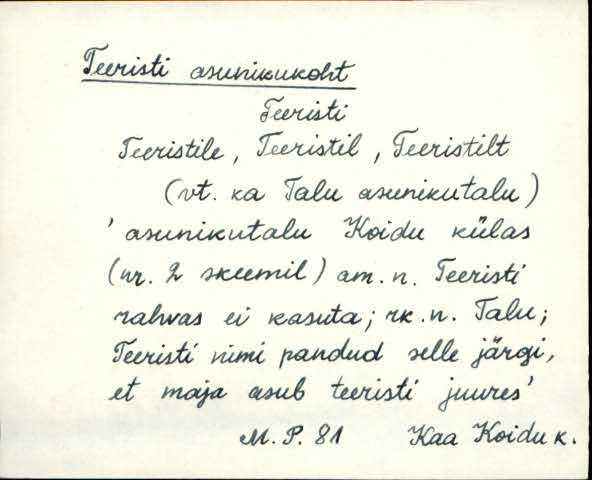 Teeristi asunikukoht
Teeristi
Teeristile, Teeristil, Teeristilt
(vt. ka Talu asunikutalu)
' asunikutalu Koidu külas
(nr. 2 skeemil) am. n. Teeristi
rahvas ei kasuta; rk. n. Talu;
Teeristi nimi pandud selle järgi,
et maja asub teeristi juures'
M. P. 81 Kaa Koidu k.